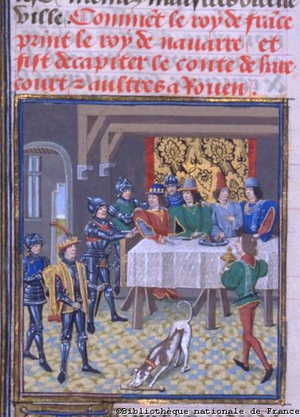 ville.
Comment le roy de france
print le roy de nauarre et
fist decapiter le conte de hare
court z aultres a Rouen.
©Bibliothèque nationale de France